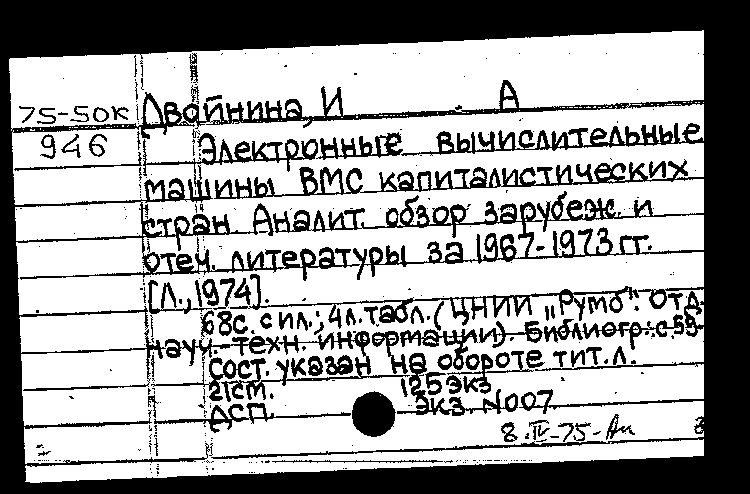 75-50К Двойнина, И. А
946 Электронные вычислительные
машины ВМС капиталистических
стран. Аналит. обзор зарубеж. и
отеч. литературы за 1967-1973 гг.
[Л., 1974].
68с. с ил.; 4л. табл. (ЦНИИ „Румб". Отд.
науч.-техн. информации). Библиогр.: с.59-
Сост. указан на обороте тит. л.
21см. 125 экз
ДСП. Экз. N007
8.IV-75-